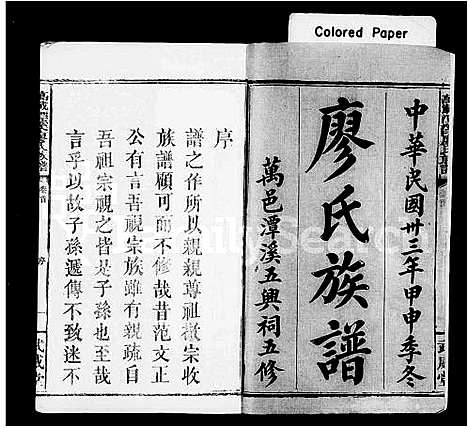 Colored Paper
中華民國卅三年甲申季冬
廖氏族譜
萬邑潭溪五興祠五修
武威堂
序
譜之作所以親親尊祖敬宗收
族譜顧可而不修哉昔范文正
公有言吾視宗族雖有親疏自
吾祖宗視之皆是子孫也至哉
言乎以故子孫遞傳不致迷不
卷首
序
一
武威堂
FamilySearch